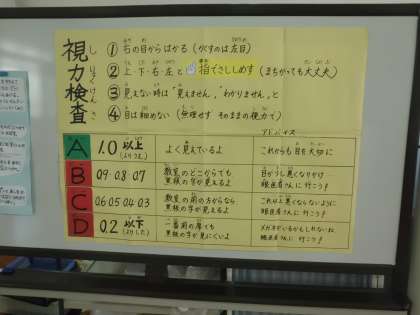 視力検査
しりょくけんさ
① 右の目からはかる（かくすのは左目）
② 上・下・右・左と 指でさししめす（まちがっても大丈夫）
③ 見えない時は"見えません、わかりません"と
④ 目は細めない（無理せず そのままの視力で）
アドバイス
A 1.0 以上 よく見えているよ これからも目を大切に
（より上）
B 0.9 0.8 0.7 教室のどこからでも
黒板の字が見えるよ
目が少し悪くなりかけ
眼医者さんに行こう！
C 0.6 0.5 0.4 0.3 教室の前の方からなら
黒板の字が見えるよ
これ以上悪くならないように
眼医者さんに行こう！
D 0.2 以下 一番前の席でも
（より下）
黒板の字が見にくいよ
メガネがいるかもしれないね。
眼医者さんに行こう！